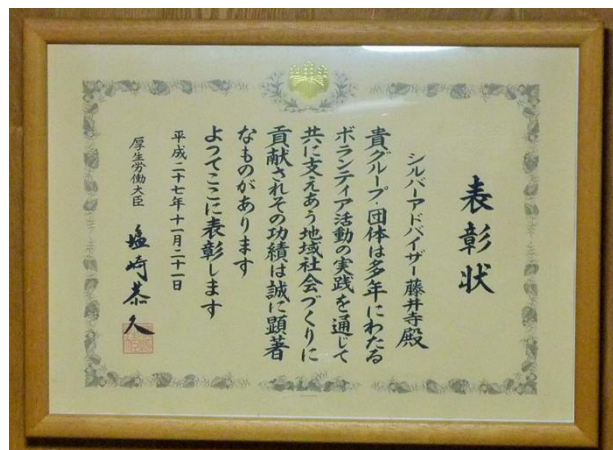 表彰状
シルバーアドバイザー藤井寺殿
貴グループ・団体は多年にわたる
ボランティア活動の実践を通じて
共に支えあう地域社会づくりに
貢献されその功績は誠に顕著
なものがあります
よってここに表彰します
平成二十七年十一月二十一日
厚生労働大臣 塩崎恭久